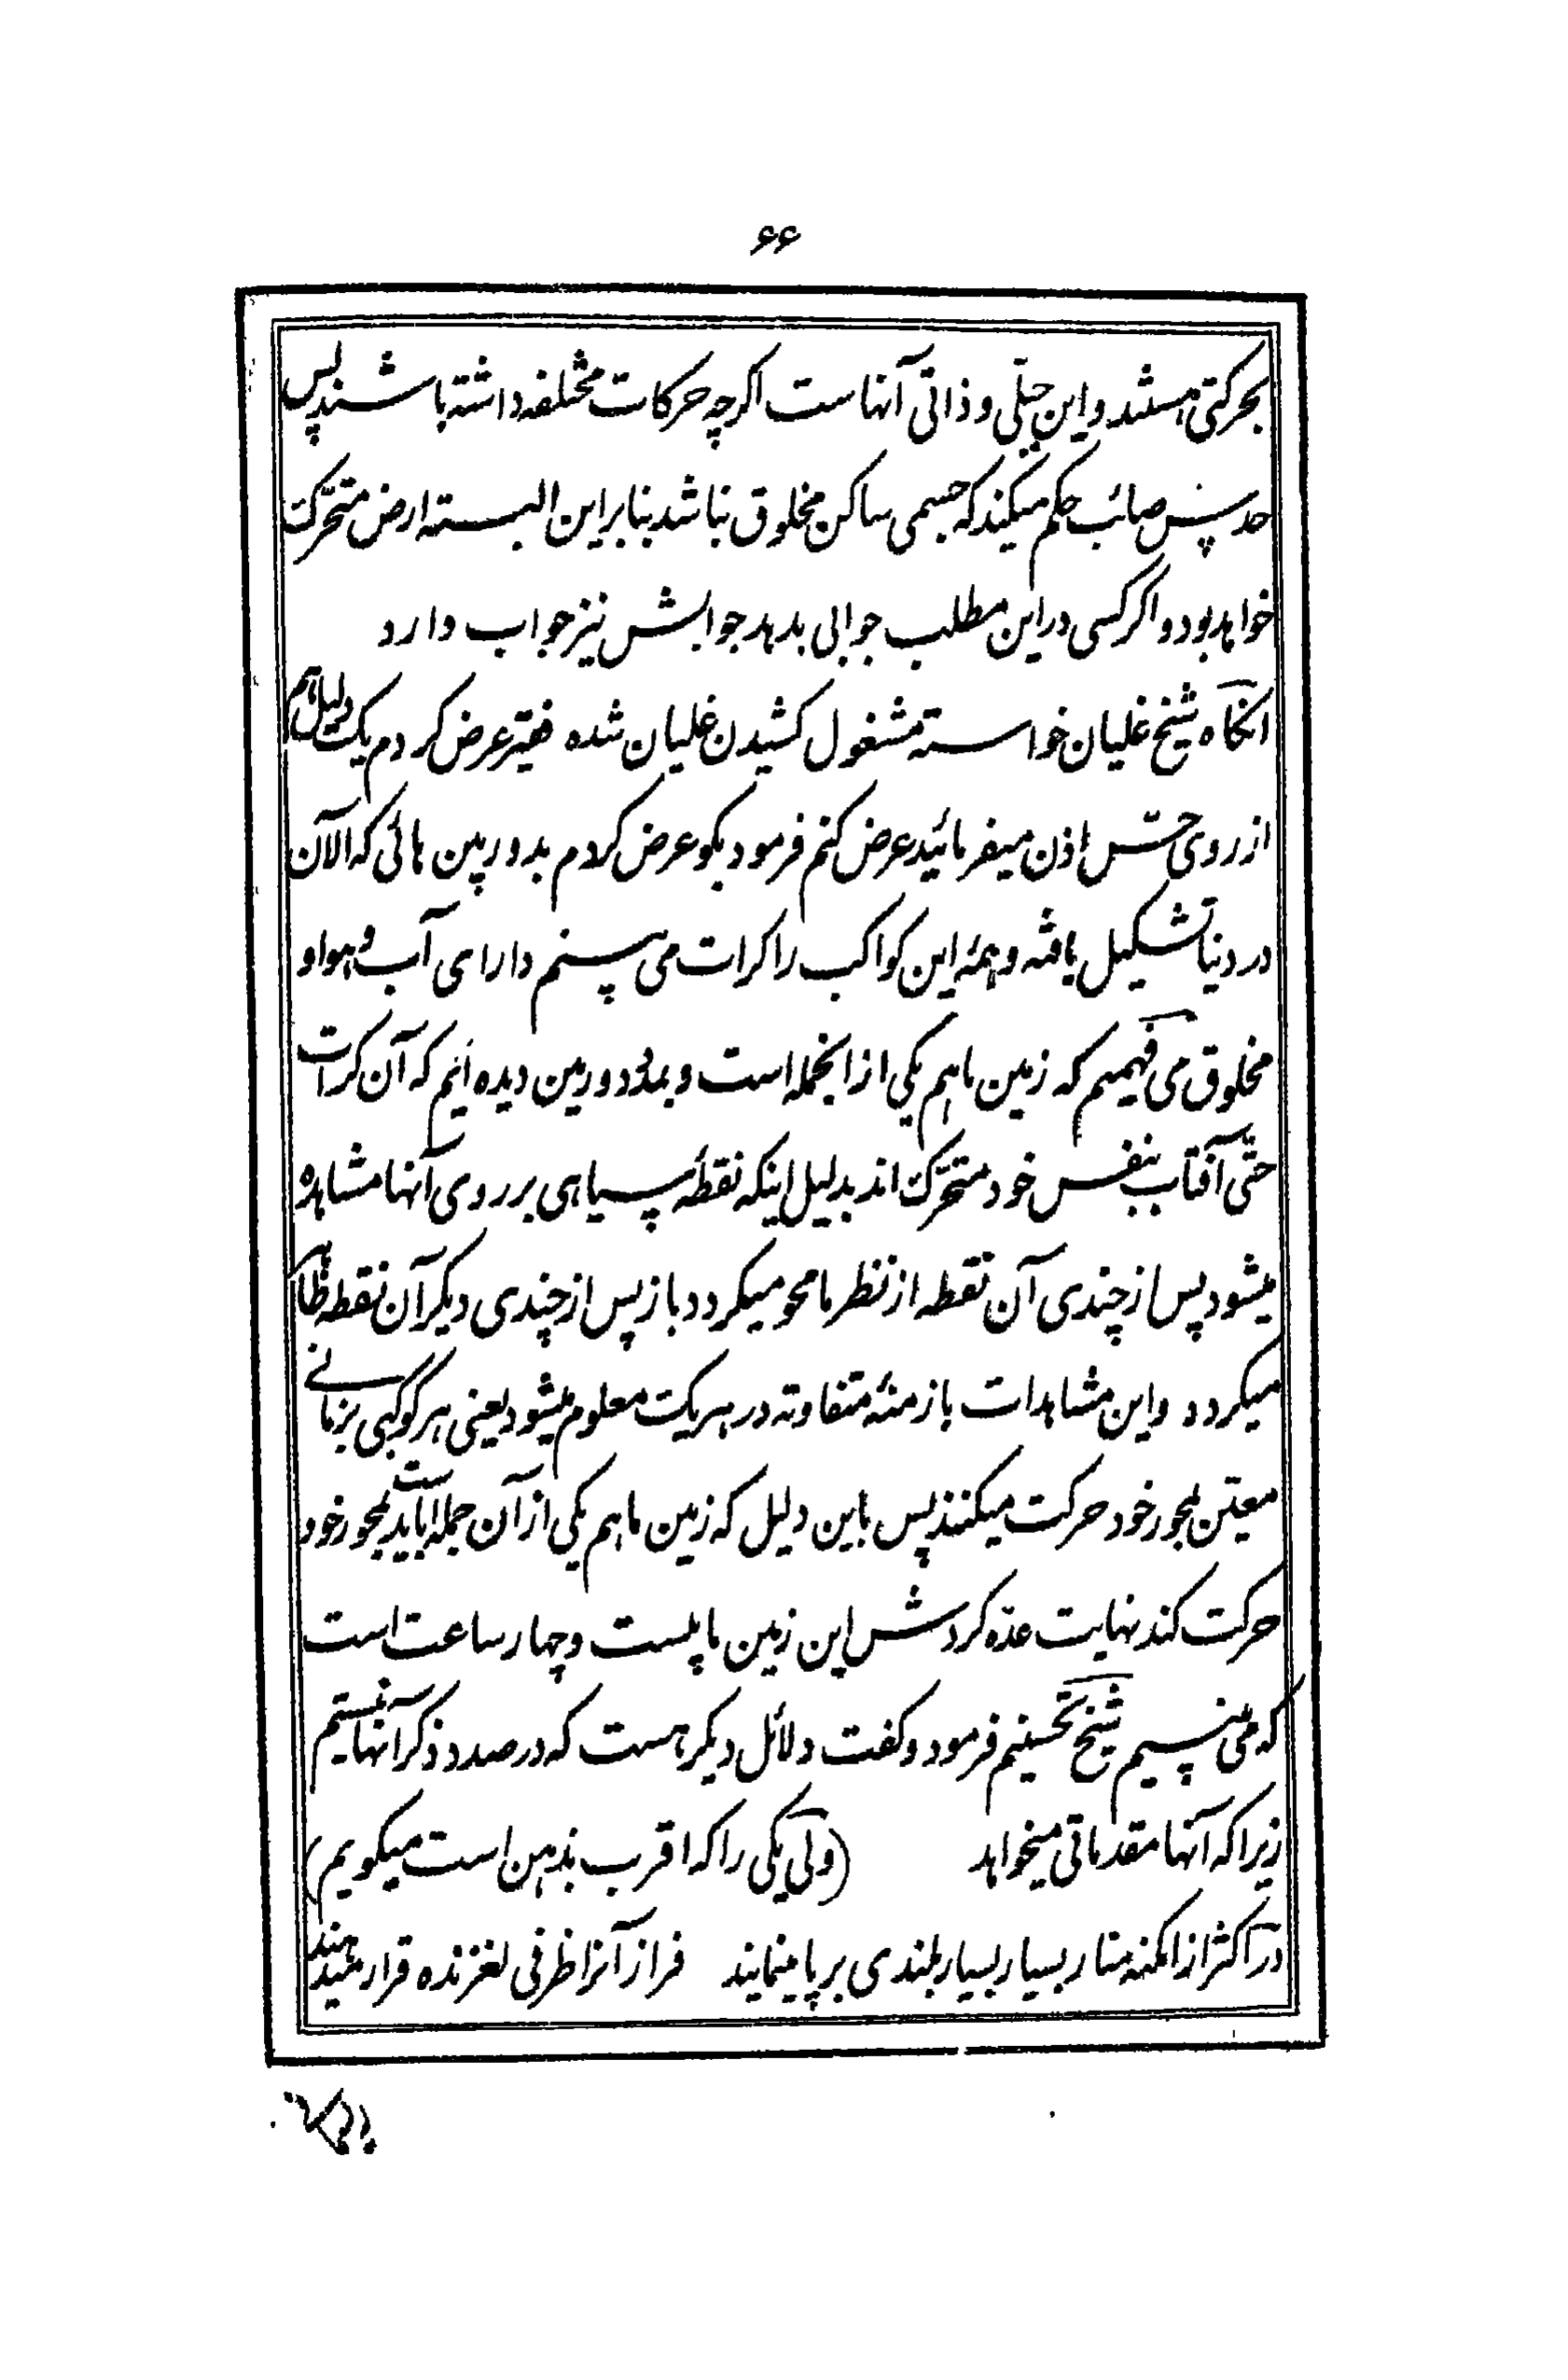 ۶۶
بحرکتی هستند و این جبلّی و ذاتی آنهاست اکرچه حرکات مختلفه داشته باشند پس
حدس صائب حکم میکند که جسمی ساکن مخلوق نباشد بنابراین البسته ارض متحرّک
خواهد بود و اگر کسی در این مطلب جوابی بدهد جوابش نیز جواب دارد
آنکاه شیخ غلیان خواسته مشغول کشیدن غلیان شده فقیر عرض کردم یک دلیل هم
از روی حسّ اذن میفرمائید عرض کنم فرمود بکو عرض کردم بدوربین هائی که الآن
در دنیا تشکیل یافته و همهٔ این کواکب را کرات می بینم دارای آب و هوا و
مخلوق می فهمیم که زمین ما هم یکی از آنجمله است و بمدد دوربین دیده ایم که آن کرات
حتّی آفتاب بنفس خود متحرّک اند بدلیل اینکه نقطهٔ سیاهی بر روی آنها مشاهده
میشود پس از چندی آن نقطه از نظر ما محو میکردد باز پس از چندی دیکر آن نقطه ظاهر
میکردد و این مشاهدات بازمنهٔ متفاوته در هریک معلوم میشود یعنی هر کوکبی بزمانے
معیّن بمحور خود حرکت میکنند پس باین دلیل که زمین ما هم یکی از آن جمله است باید بمحور خود
حرکت کند نهایت عدّه کردش این زمین ما بیست و چهار ساعت است
که می بینیم شیخ تحسینم فرمود و کفت دلائل دیکر هست که در صدد ذکر آنها نیستیم
زیرا که آنها مقدماتی میخواهد (ولی یکی را که اقرب بذهن است میکویم)
در اکثر از امکنه منار بسیار بسیار بلندی برپا مینمایند فراز آنرا ظرفی لغزنده قرار میدهند